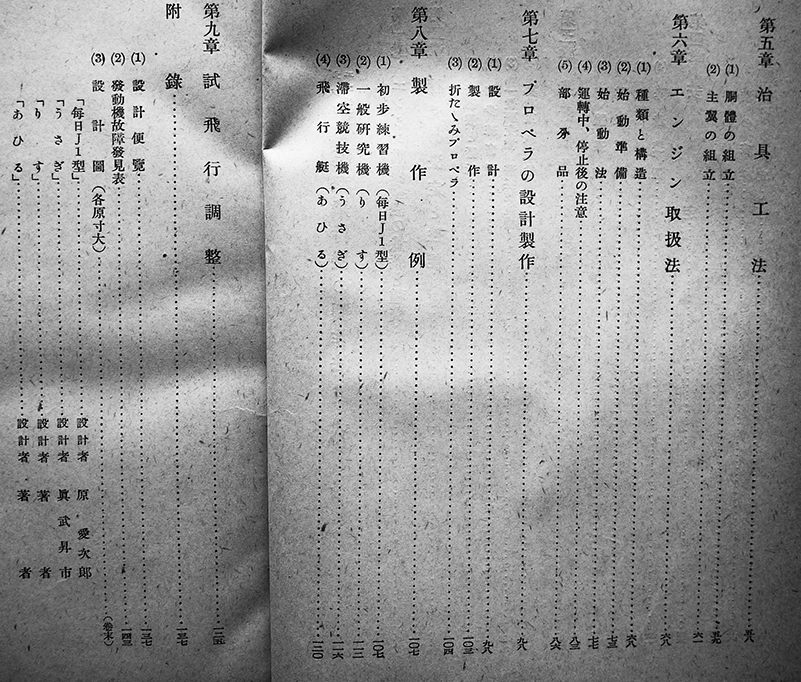 第五章 治具工法……五八
(1) 胴體の組立……五九
(2) 主翼の組立……六一
第六章 エンジン取扱法……六八
(1) 種類と構造……六八
(2) 始動準備……七三
(3) 始動法……七七
(4) 運轉中、停止後の注意……八三
(5) 部分品……八六
第七章 プロペラの設計製作……九八
(1) 設計……九八
(2) 製作……一〇三
(3) 折たゝみプロペラ……一〇四
第八章 製作例……一〇七
(1) 初步練習機(每日J1型)……一〇七
(2) 一般研究機(りす)……一一三
(3) 滯空競技機(うさぎ)……一一六
(4) 飛行艇(あひる)……一二〇
第九章 試飛行調整……一二五
附錄……一三七
(1) 設計便覽……一三七
(2) 發動機故障發見表……一四三
(3) 設計圖(各原寸大)……(卷末)
「每日J1型」……設計者 原愛次郎
「うさぎ」……設計者 眞武昇市
「りす」……設計者 著者
「あひる」……設計者 著者